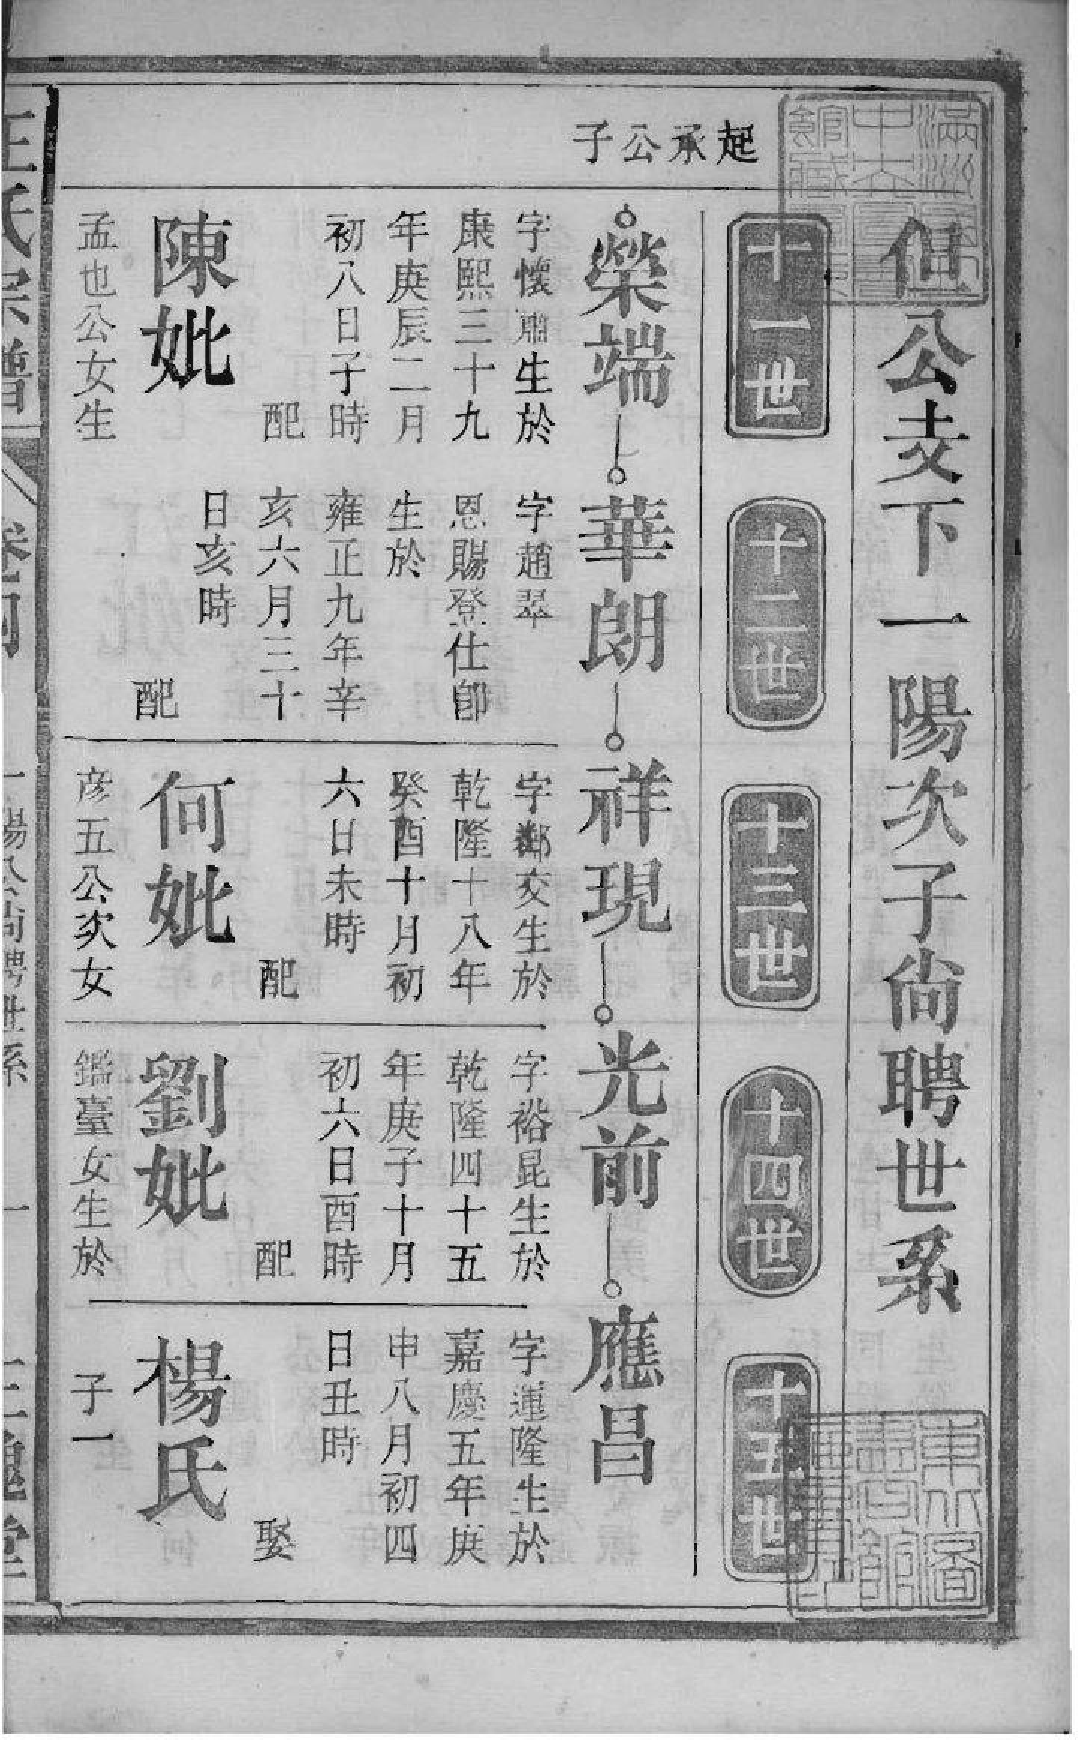 伹公支下一陽次子尙聘世系
十一世
十二世
十三世
十四世
十五世
起承公子
榮端
華朗
祥現
光前
應昌
字懷肅生於
康熙三十九
年庚辰二月
初八日子時
配
陳妣
孟也公女生
字趙翠
恩賜登仕郎
生於
雍正九年辛
亥六月三十
日亥時
配
字鄰交生於
乾隆十八年
癸酉十月初
六日未時
配
何妣
彦五公次女
字裕昆生於
乾隆四十五
年庚子十月
初六日酉時
配
劉妣
鑑臺女生於
字運隆生於
嘉慶五年庚
申八月初四
日丑時
娶
楊氏
子一
王氏宗譜
卷
一陽公尙聘世系
一
三槐堂